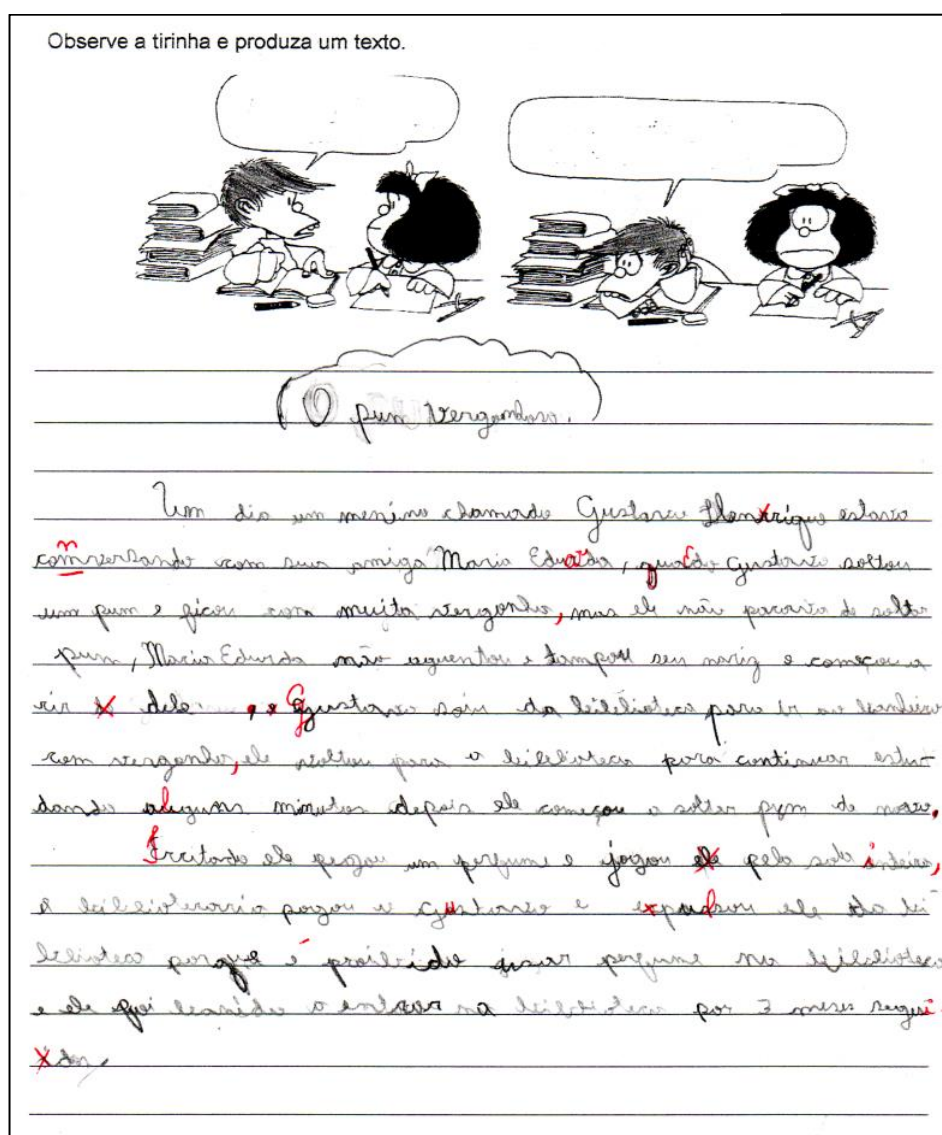 Observe a tirinha e produza um texto.
O pum vergonhoso.
Um dia um menino chamado Gustavo Henrique estava
conversando com sua amiga Maria Eduarda, quando Gustavo soltou
um pum e ficou com muita vergonha, mas ele não parava de soltar
pum, Maria Eduarda não aguentou e tampou seu nariz e começou a
rir dele. Gustavo saiu da biblioteca para ir ao banheiro
com vergonha, ele voltou para a biblioteca para continuar estu-
dando alguns minutos depois ele começou a soltar pum de novo.
Irritado ele pegou um perfume e jogou pela sala inteira,
a bibliotecaria pegou o Gustavo e expulsou ele da bi
blioteca porque é proibido jogar perfume na biblioteca
e ele foi banido a entrar na biblioteca por 3 meses segui
dos.